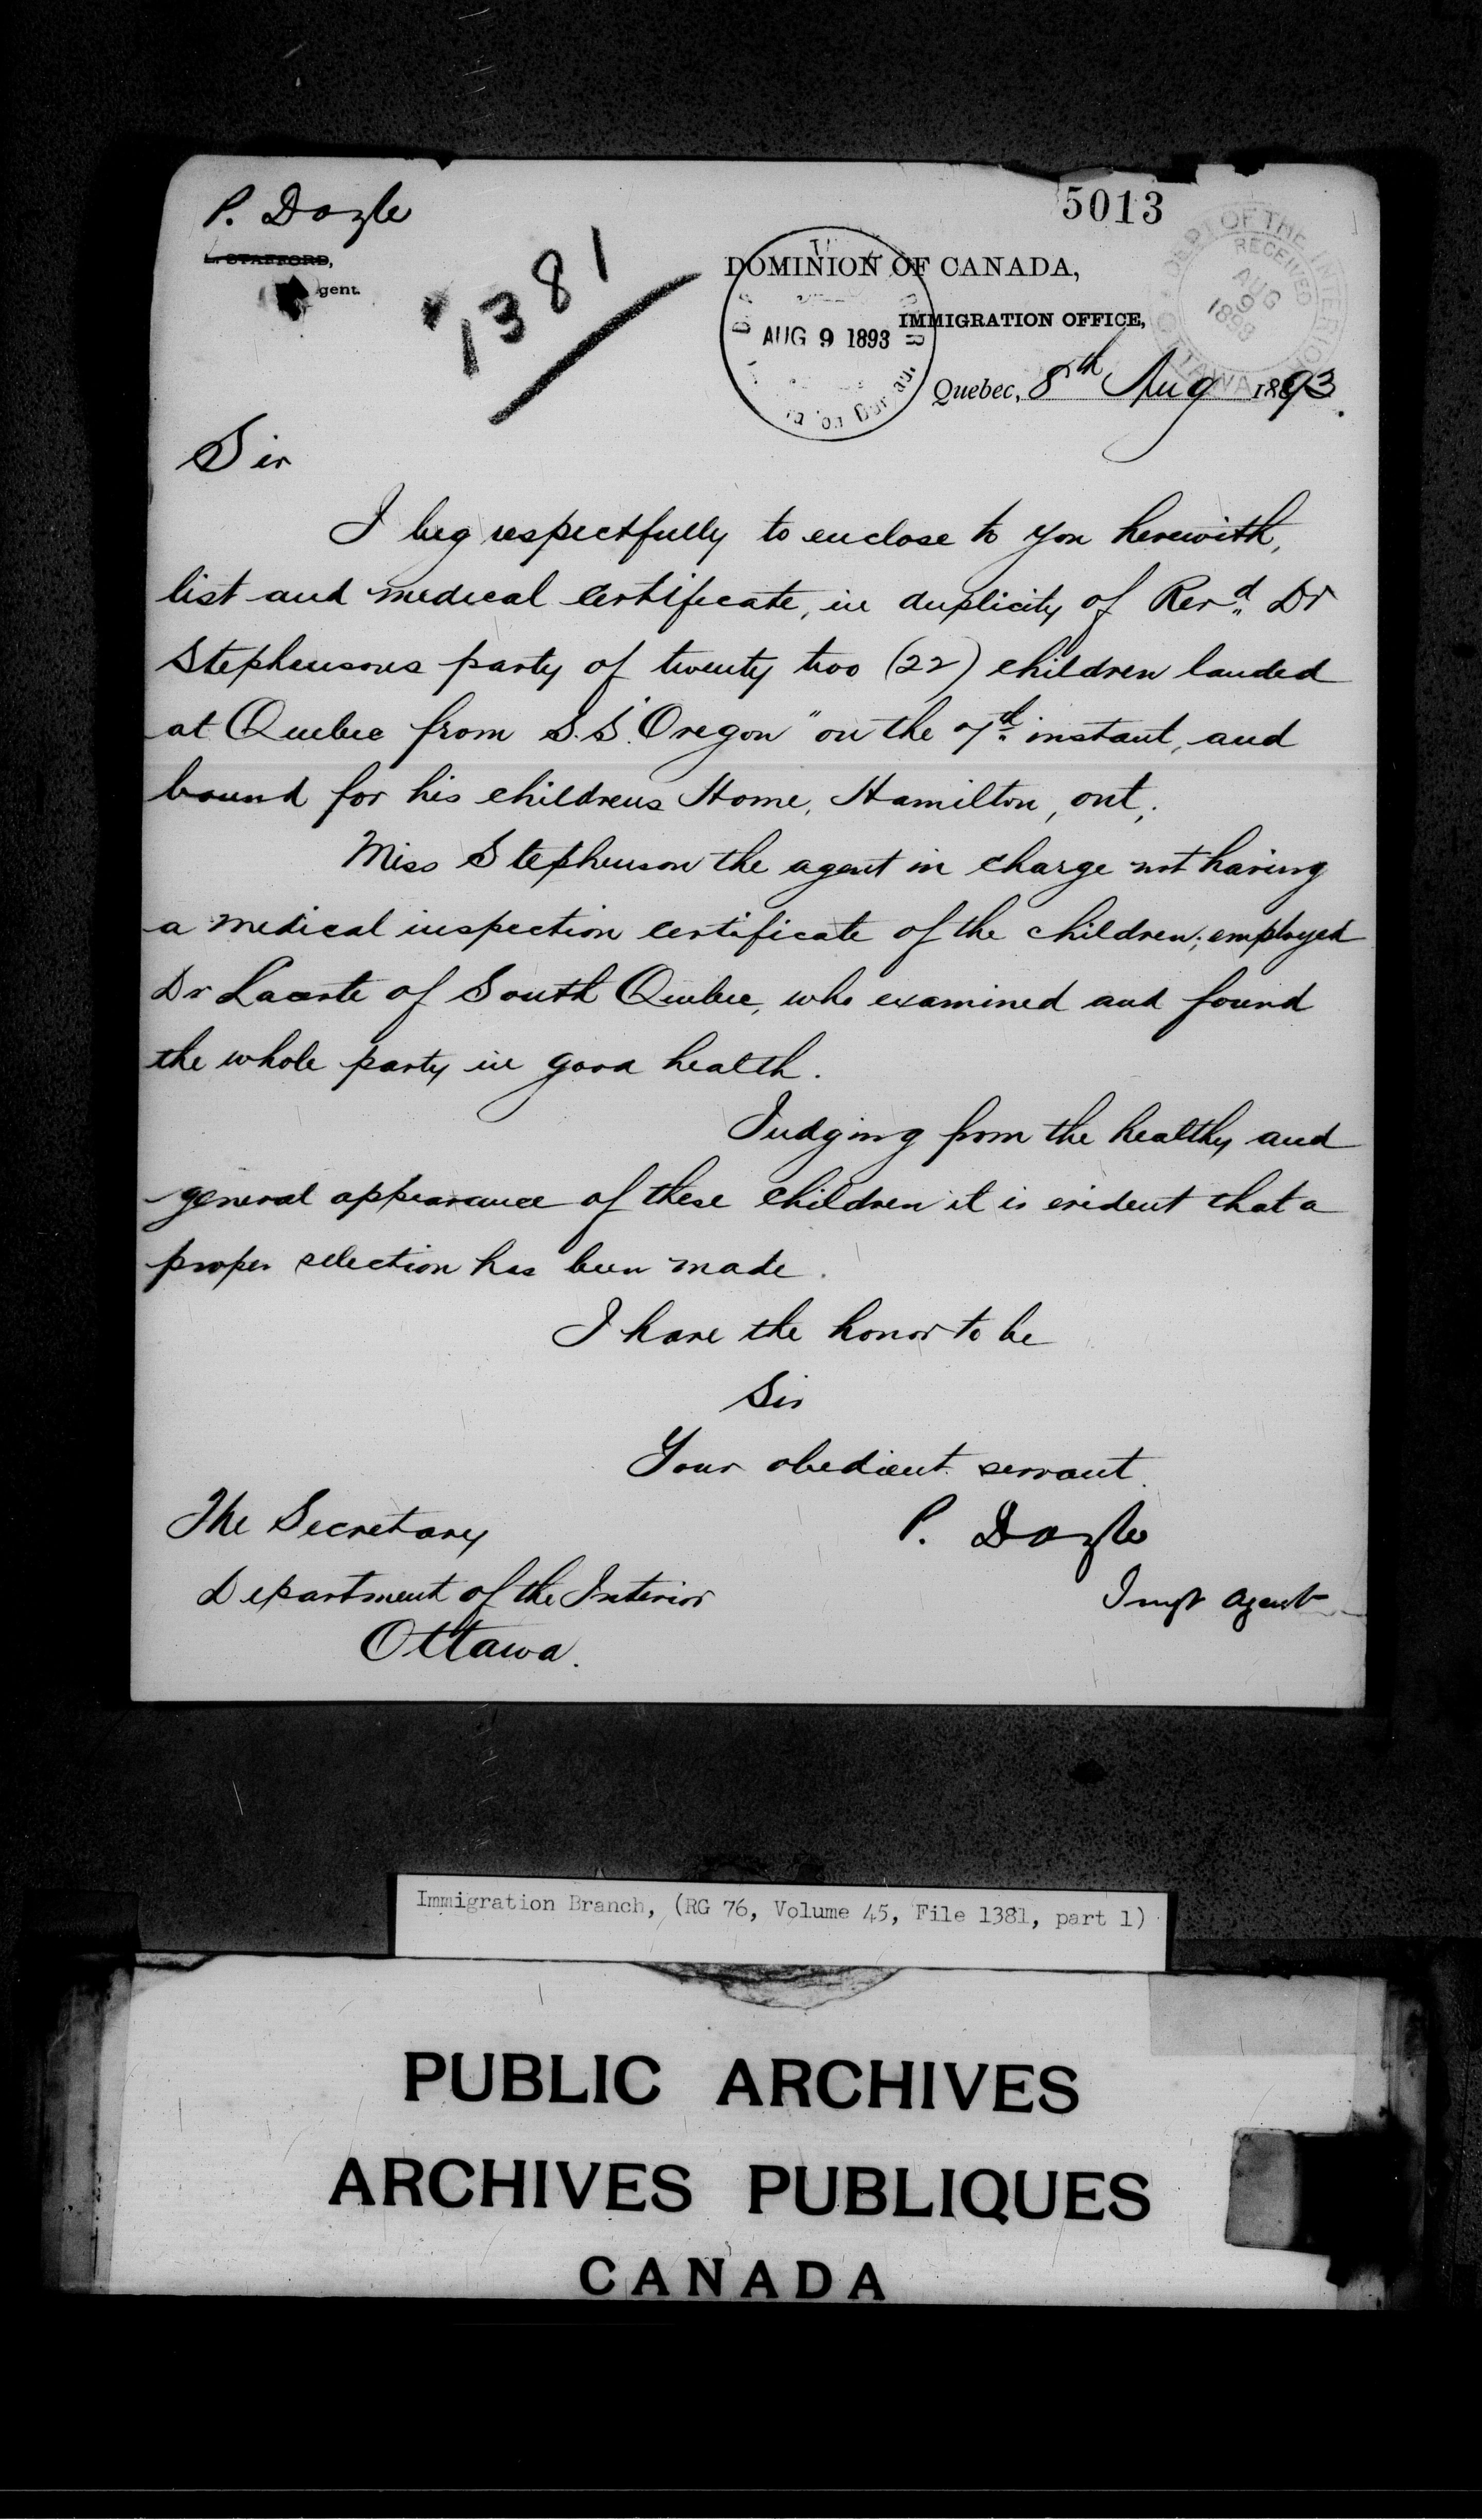 5013
P. Doyle
L. STAFFORD,
gent.
1381
DOMINION OF CANADA,
IMMIGRATION OFFICE,
AUG 9 1893
DEPT OF THE INTERIOR
RECEIVED
AUG
9
1893
OTTAWA
Quebec, 8th Aug 1893.
Sir
I beg respectfully to enclose to you herewith,
list and medical certificate, in duplicity of Revd. Dr
Stephensons party of twenty two (22) children landed
at Quebec from S.S. "Oregon" on the 7th instant, and
bound for his childrens Home, Hamilton, ont.
Miss Stephenson the agent in charge not having
a medical inspection certificate of the children; employed
Dr of South Quebec, who examined and found
the whole party in good health.
Judging from the healthy and
general appearance of these children it is evident that a
proper selection has been made.
I have the honor to be
Sir
Your obedient servant.
P. Doyle
Imgt agent
The Secretary
Department of the Interior
Ottawa.
Immigration Branch, (RG 76, Volume 45, File 1381, part 1)
PUBLIC ARCHIVES
ARCHIVES PUBLIQUES
CANADA